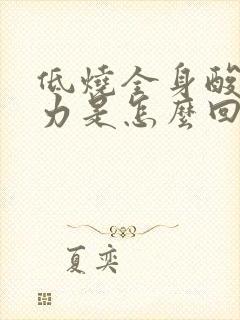 低燒全身酸
力是怎麼回
夏奕